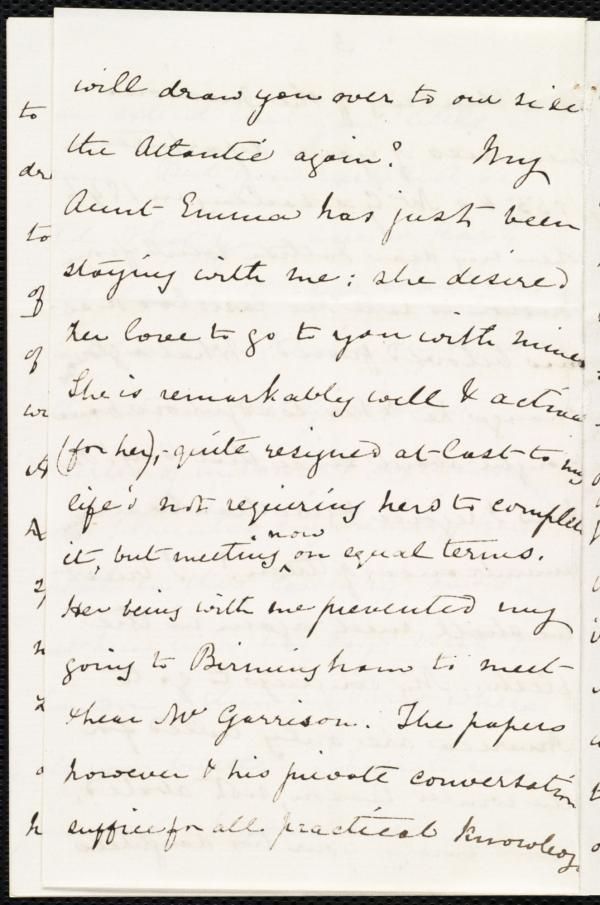 will draw you over to our side
the Atlantic again? My
Aunt Emma has just been
staying with me: she desired
her love to go to you with mine.
She is remarkably well & active
(for her),- quite resigned at last to my
life's not requiring hers to complete
it, but meeting now on equal terms.
Her being with me prevented my
going to Birmingham to meet
& hear Mr Garrison. The papers
however & his private conversation
suffice for all practical knowledge
to
dr
to
of
of